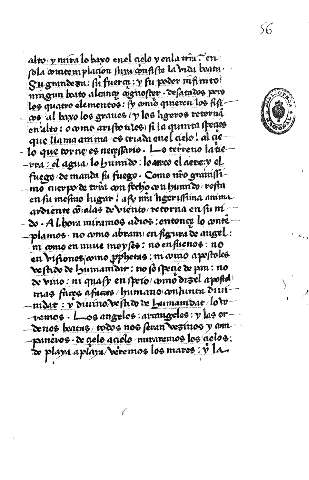 56
alto y mira lo baxo en el cielo y en la trr̃a en
sola contemplacion suya consiste la vida beata
Su grandeza: su fuerça: y su poder infinito:
ningun beato alcança cognoscer. desatados pero
los quatro elementos: sy como quieren los fisi
cos al baxo los graues: y los ligeros retorna
en alto: o como aristotiles: si la quinta speçies
que llama anima es criada en el cielo: al çie
lo que torne es neçessario. Lo terreno la tie
rra: el agua lo humido: lo aereo el aere: y el
fuego demanda su fuego. Como nr̃o grauissi
mo cuerpo de trr̃a confecho con humido resta
en su mesmo lugar: assy mi ligerissima anima
ardiente con alas de viento retorna en su ni
do. Alhora miramos a dios: entonçes lo contē
plamos. no como abram: en figura de angel:
ni como en nuue moyses: no en suenos: no
en visiones como prophetas: ni como apostoles
vestido de humanidat: no so speçie de pan: no
de vino: ni quasy en speio como dize el apostol
mas façies a façies: humano conjunta diui
nidat: y diuino vestido de humanidat lo ve
remos. Los angeles: arcangeles: y las or
denes beatas todos nos seran vezinos y com
paneros. de çielo a çielo miraremos los cielos:
de playa a playa veremos los mares: y la